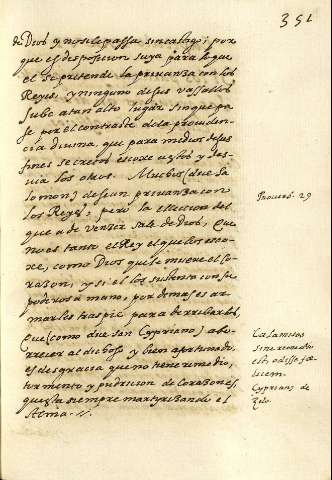 351
de Dios y no se le passa sin catalogo; por
que es desposicion suya para lo que
el se pretende la privanza con los
Reyes, y ninguno de sus vasallos
sube a tan alto lugar sin que pa
se por el contraste de la providen
cia divina, que para medios de sus
fines se crecen escoxe a estos y des
via los otros. Muchos (dice Sa
lomon) desean privanza con
los Reyes, pero la eleccion del
que a de vencer sale de Dios, que
no es tanto el Rey el que los esco
xe, como Dios que le mueve el co
razon, y si el los sustenta con su
poderosa mano, por demas es ar
marles traspie para derribarlos,
que (como dice san Cypriano) abo
rrecer al dichoso y bien afortunado,
es desgracia que no tiene remedio,
tormento y pudricion de corazones,
que esta siempre martyrizando el
Alma.
Proverb. 29
Calamitas
sine remedio
est, odisse fæ
licem.
Cyprian, de
Zelo.